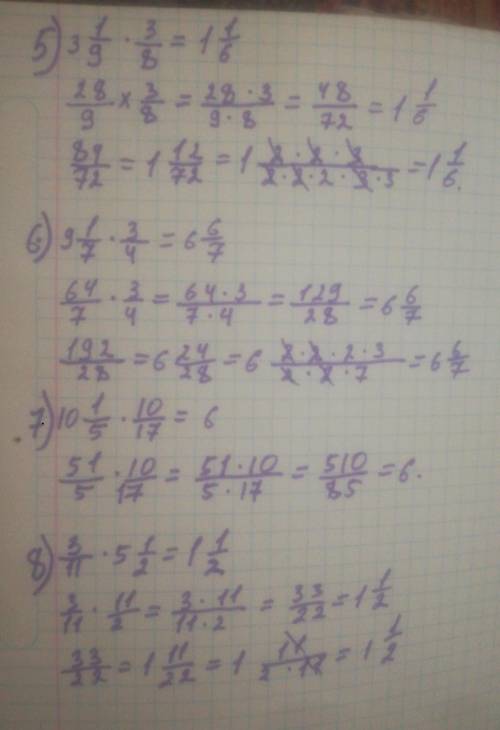 5) 3 1/9 · 3/8 = 1 1/6
28/9 × 3/8 = 28·3/9·8 = 48/72 = 1 1/6
89/72 = 1 12/72 = 1 2·2·3/2·2·2·3·3 = 1 1/6.
6) 9 1/7 · 3/4 = 6 6/7
64/7 · 3/4 = 64·3/7·4 = 129/28 = 6 6/7
192/28 = 6 24/28 = 6 2·2·2·3/2·2·7 = 6 6/7
7) 10 1/5 · 10/17 = 6
51/5 · 10/17 = 51·10/5·17 = 510/85 = 6.
8) 3/11 · 5 1/2 = 1 1/2
3/11 · 11/2 = 3·11/11·2 = 33/22 = 1 1/2
33/22 = 1 11/22 = 1 11/2·11 = 1 1/2